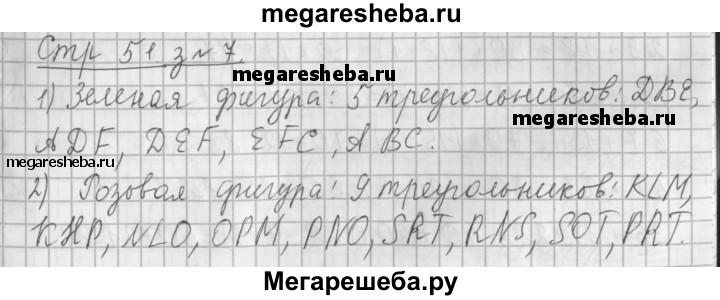 megaresheba.ru
Стр 51 з № 7.
megaresheba.ru
1) Зеленая фигура: 5 треугольников: DBE,
megaresheba.ru
ADF, DEF, EFC, ABC.
megaresheba.ru
2) Розовая фигура: 9 треугольников: KLM,
KHP, NLO, OPM, PNO, SRT, RNS, SOT, PRT.
Мегарешеба.ру